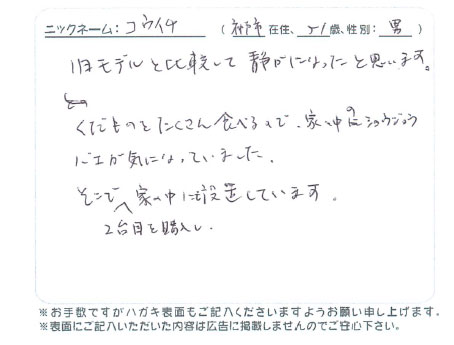 ニックネーム：コウイチ （神戸市 在住、51歳、性別：男）
旧モデルと比較して静かになったと思います。
くだものをたくさん食べるので、家の中のショウジョウ
バエが気になっていました。
そこで2台目を購入し、家の中に設置しています。
※お手数ですがハガキ表面もご記入くださいますようお願い申し上げます。
※表面にご記入いただいた内容は広告に掲載しませんのでご安心下さい。